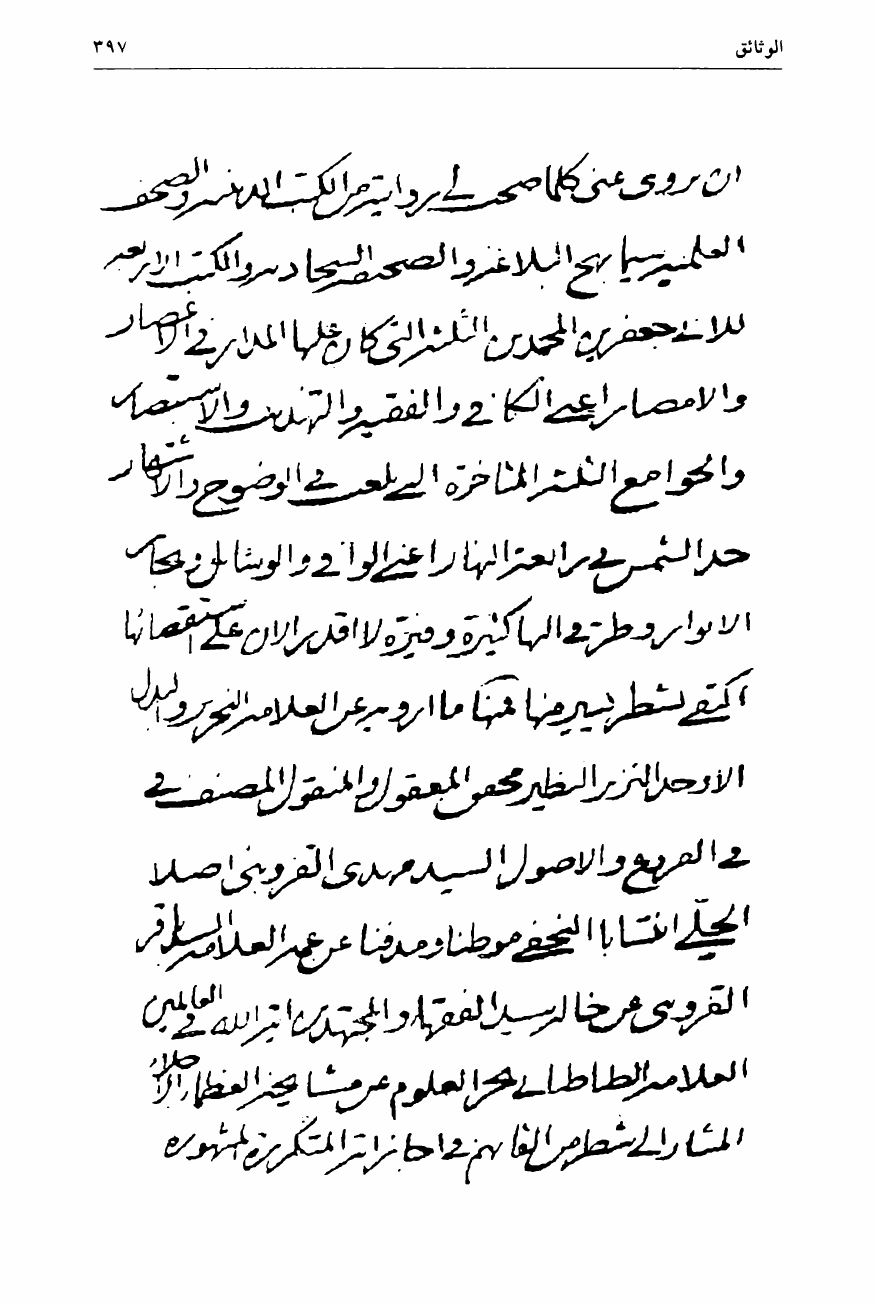 الوثائق ٣٩٧
ان يروى عنى كلما صحت لي روايته من الكتب الدينيه والصحف
العلميه سيما نهج البلاغه والصحيفه السجاديه والكتب الاربعه
للائى جعفرين المحمدين الثلثه التى كان عليها المدار في الاعصار
والامصار اعنى الكافي والفقيه والتهذيب والاستبصار
والجوامع الثلثه المتاخرة التي بلغت في الوضوح والاشتهار
حد الشمس في رابعة النهار اعنى الوافي والوسائل وبحار
الانوار وطرقي اليها كثيرة وفيرة لا اقدر الان على استقصائها
اكتفى بشطر يسير منها فمنها ما ارويه عن العلامه النحرير والبدل
الاوحد النزر النظير محقق المعقول والمنقول المصنف في
في الفروع والاصول السيد مهدى القزوينى اصلا
الحلي انتسابا النجفي موطنا ومدفنا عن عمه العلامه السيد باقر
القزوينى عن خاله سيد الفقهاء والمجتهدين اية الله في العالمين
العلامه الطباطبائي بحر العلوم عن مشايخه العظام الاجلاء
المشار الى شطر من القابهم في اجازاته المتكررة المشهورة